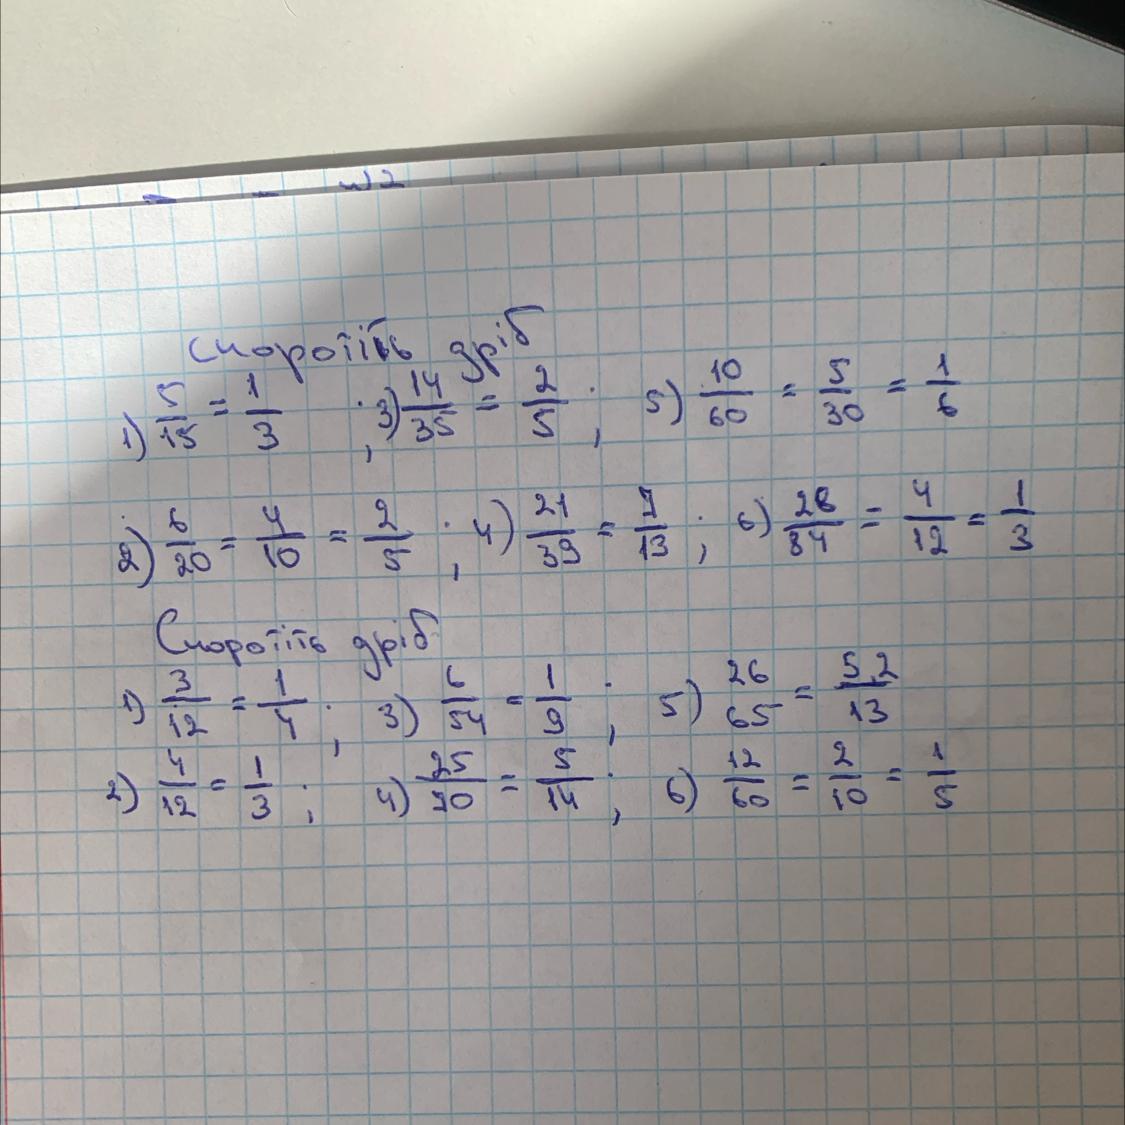 Скоротіть дріб
1) 5/15 = 1/3 ; 3) 14/35 = 2/5 ; 5) 10/60 = 5/30 = 1/6
2) 8/20 = 4/10 = 2/5 ; 4) 21/39 = 7/13 ; 6) 28/84 = 4/12 = 1/3
Скоротіть дріб
1) 3/12 = 1/4 ; 3) 6/54 = 1/9 ; 5) 26/65 = 52/13
2) 4/12 = 1/3 ; 4) 25/70 = 5/14 ; 6) 12/60 = 2/10 = 1/5